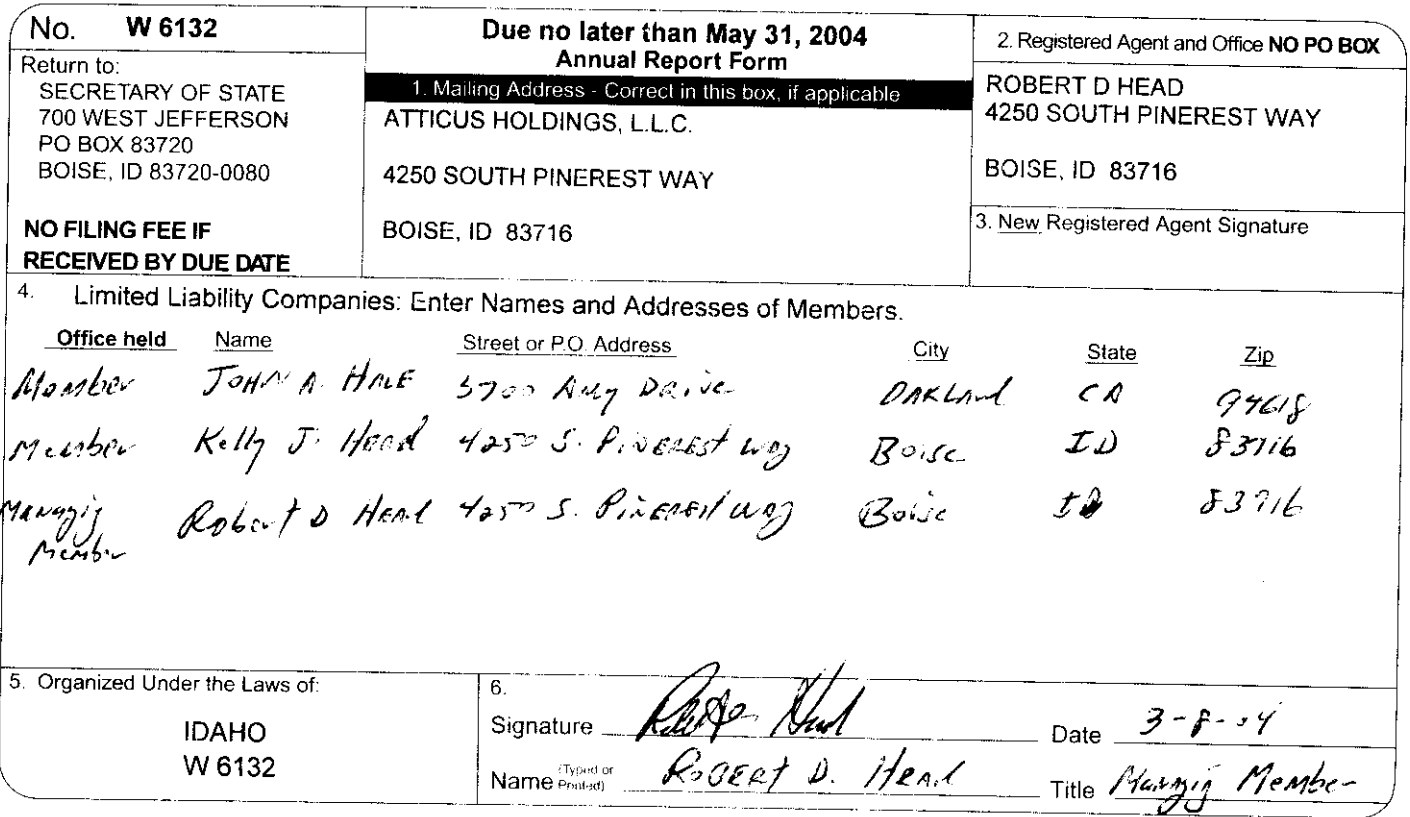 No. W 6132
Return to:
SECRETARY OF STATE
700 WEST JEFFERSON
PO BOX 83720
BOISE, ID 83720-0080
NO FILING FEE IF
RECEIVED BY DUE DATE
Due no later than May 31, 2004
Annual Report Form
1. Mailing Address - Correct in this box, if applicable
ATTICUS HOLDINGS, L.L.C.
4250 SOUTH PINEREST WAY
BOISE, ID 83716
2. Registered Agent and Office NO PO BOX
ROBERT D HEAD
4250 SOUTH PINEREST WAY
BOISE, ID 83716
3. New Registered Agent Signature
4. Limited Liability Companies: Enter Names and Addresses of Members.
Office held Name Street or P.O. Address City State Zip
Member JOHN A. HALE 5700 Amy DRive OAKLAnd CA 94618
Member Kelly J. Head 4250 S. PINEREST Way Boise ID 83716
Managing Robert D Head 4250 S. PINEREST Way Boise ID 83716
Member
5. Organized Under the Laws of:
IDAHO
W 6132
6.
Signature Robert Head Date 3-8-04
Name (Typed or Printed) ROBERT D. HEAd Title Managing Member